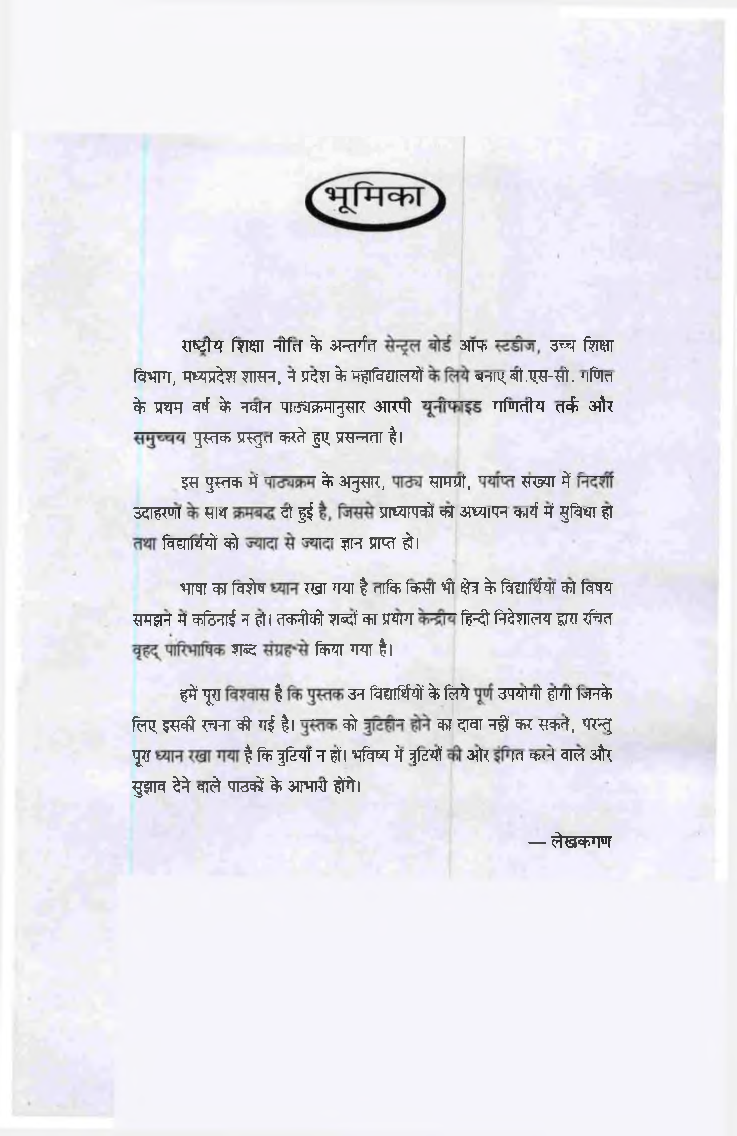 भूमिका
राष्ट्रीय शिक्षा नीति के अन्तर्गत सेन्ट्रल बोर्ड ऑफ स्टडीज, उच्च शिक्षा
विभाग, मध्यप्रदेश शासन, ने प्रदेश के महाविद्यालयों के लिये बनाए बी.एस-सी. गणित
के प्रथम वर्ष के नवीन पाठ्यक्रमानुसार आरपी यूनीफाइड गणितीय तर्क और
समुच्चय पुस्तक प्रस्तुत करते हुए प्रसन्नता है।
इस पुस्तक में पाठ्यक्रम के अनुसार, पाठ्य सामग्री, पर्याप्त संख्या में निदर्शी
उदाहरणों के साथ क्रमबद्ध दी हुई है, जिससे प्राध्यापकों को अध्यापन कार्य में सुविधा हो
तथा विद्यार्थियों को ज्यादा से ज्यादा ज्ञान प्राप्त हो।
भाषा का विशेष ध्यान रखा गया है ताकि किसी भी क्षेत्र के विद्यार्थियों को विषय
समझने में कठिनाई न हो। तकनीकी शब्दों का प्रयोग केन्द्रीय हिन्दी निदेशालय द्वारा रचित
वृहद् पारिभाषिक शब्द संग्रह से किया गया है।
हमें पूरा विश्वास है कि पुस्तक उन विद्यार्थियों के लिये पूर्ण उपयोगी होगी जिनके
लिए इसकी रचना की गई है। पुस्तक को त्रुटिहीन होने का दावा नहीं कर सकते, परन्तु
पूरा ध्यान रखा गया है कि त्रुटियाँ न हों। भविष्य में त्रुटियों की ओर इंगित करने वाले और
सुझाव देने वाले पाठकों के आभारी होंगे।
— लेखकगण